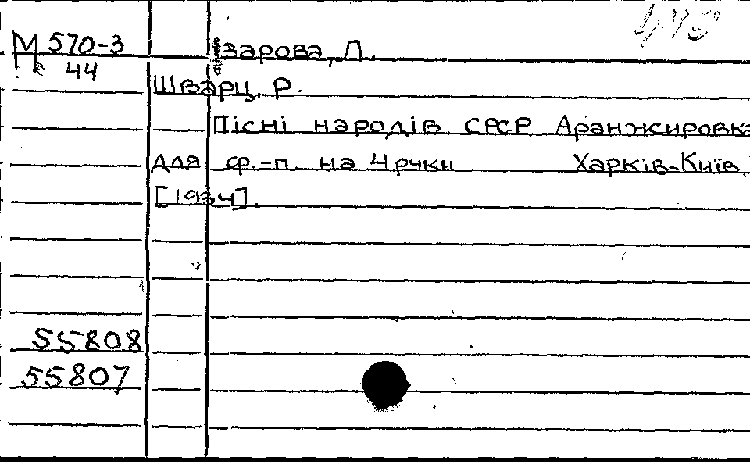 М 570-3 Ізарова, Л.
44
Шварц, Р.
Пісні народів СРСР Аранжировка
для ф.-п. на 4 ручки Харків-Київ
[1934].
55808
55807